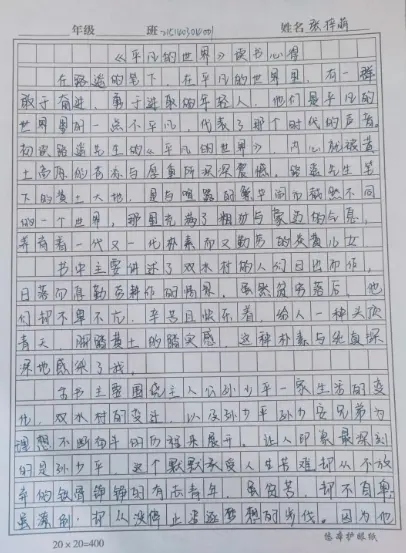 年级 班 姓名 张梓萌
《平凡的世界》读书心得
在路遥的笔下，在平凡的世界里，有一群
敢于奋进，勇于进取的年轻人，他们是平凡的
世界里的一点不平凡，代表了那个时代的声音。
初识路遥先生的《平凡的世界》，内心就被黄
土高原的苍凉与厚重所深深震撼。路遥先生笔
下的黄土大地，是与喧嚣的繁华间的截然不同
的一个世界，那里充满了粗犷与豪迈的气息，
养育着一代又一代朴素而又勤劳的炎黄儿女
书中主要讲述了双水村的人们日出而作，
日落而息勤劳耕作的情景。虽然贫穷落后，他
们却不卑不亢，辛苦且快乐着，给人一种头顶
青天，脚踏黄土的踏实感。这种朴素与纯真深
深地感染了我。
本书主要围绕主人公孙少平一家生活的变
化，双水村的变迁，以及孙少平孙少安兄弟为
理想不断奋斗的历程来展开。让人印象最深刻
的是孙少平，这个默默承受人生苦难却从不放
弃的铁骨铮铮的有志青年，虽贫苦，却不自卑
虽深刻，却从没停止追逐梦想的步伐。因为他
20×20=400